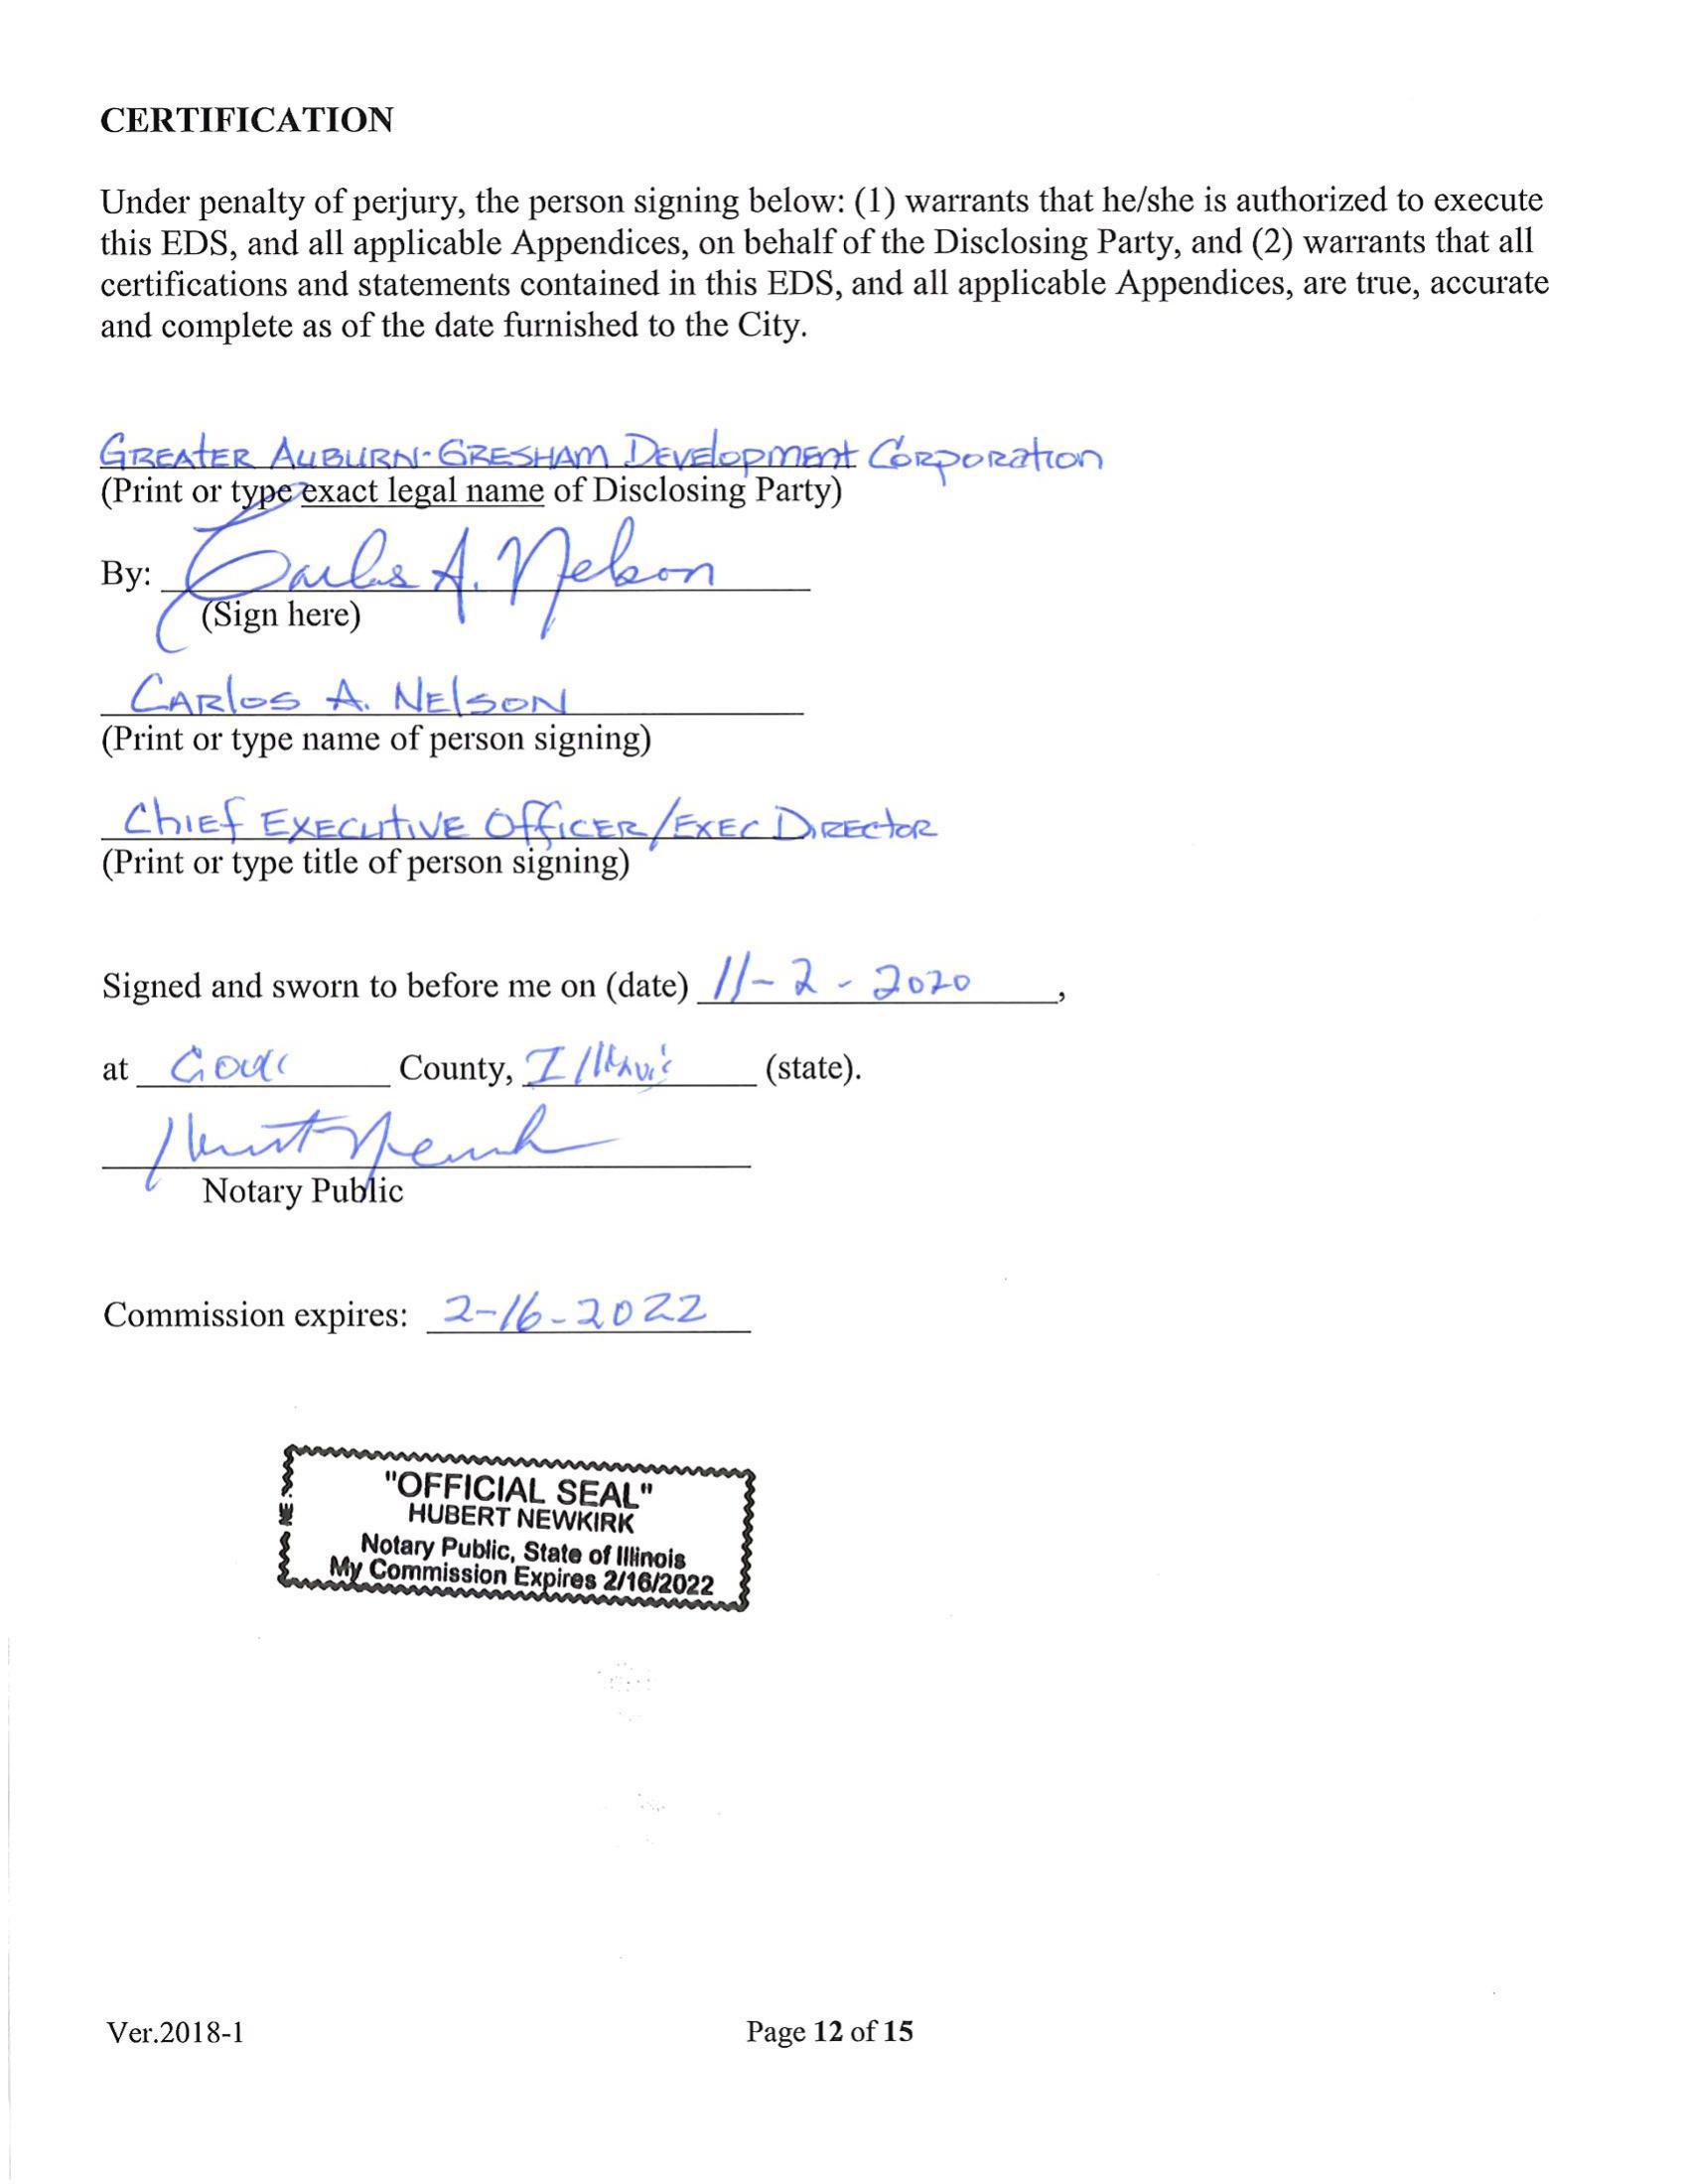 CERTIFICATION
Under penalty of perjury, the person signing below: (1) warrants that he/she is authorized to execute
this EDS, and all applicable Appendices, on behalf of the Disclosing Party, and (2) warrants that all
certifications and statements contained in this EDS, and all applicable Appendices, are true, accurate
and complete as of the date furnished to the City.
GREATER AUBURN-GRESHAM DEVElopmENt CoRpoRation
(Print or type exact legal name of Disclosing Party)
By: Carlos A. Nelson
(Sign here)
CARlos A. NElsoN
(Print or type name of person signing)
ChIEf EXECUtIVE OffICER/EXEC DIRECtoR
(Print or type title of person signing)
Signed and sworn to before me on (date) 11-2-2020,
at County, Illinois (state).
Notary Public
Commission expires: 2-16-2022
"OFFICIAL SEAL"
HUBERT NEWKIRK
Notary Public, State of Illinois
My Commission Expires 2/16/2022
Ver.2018-1 Page 12 of 15